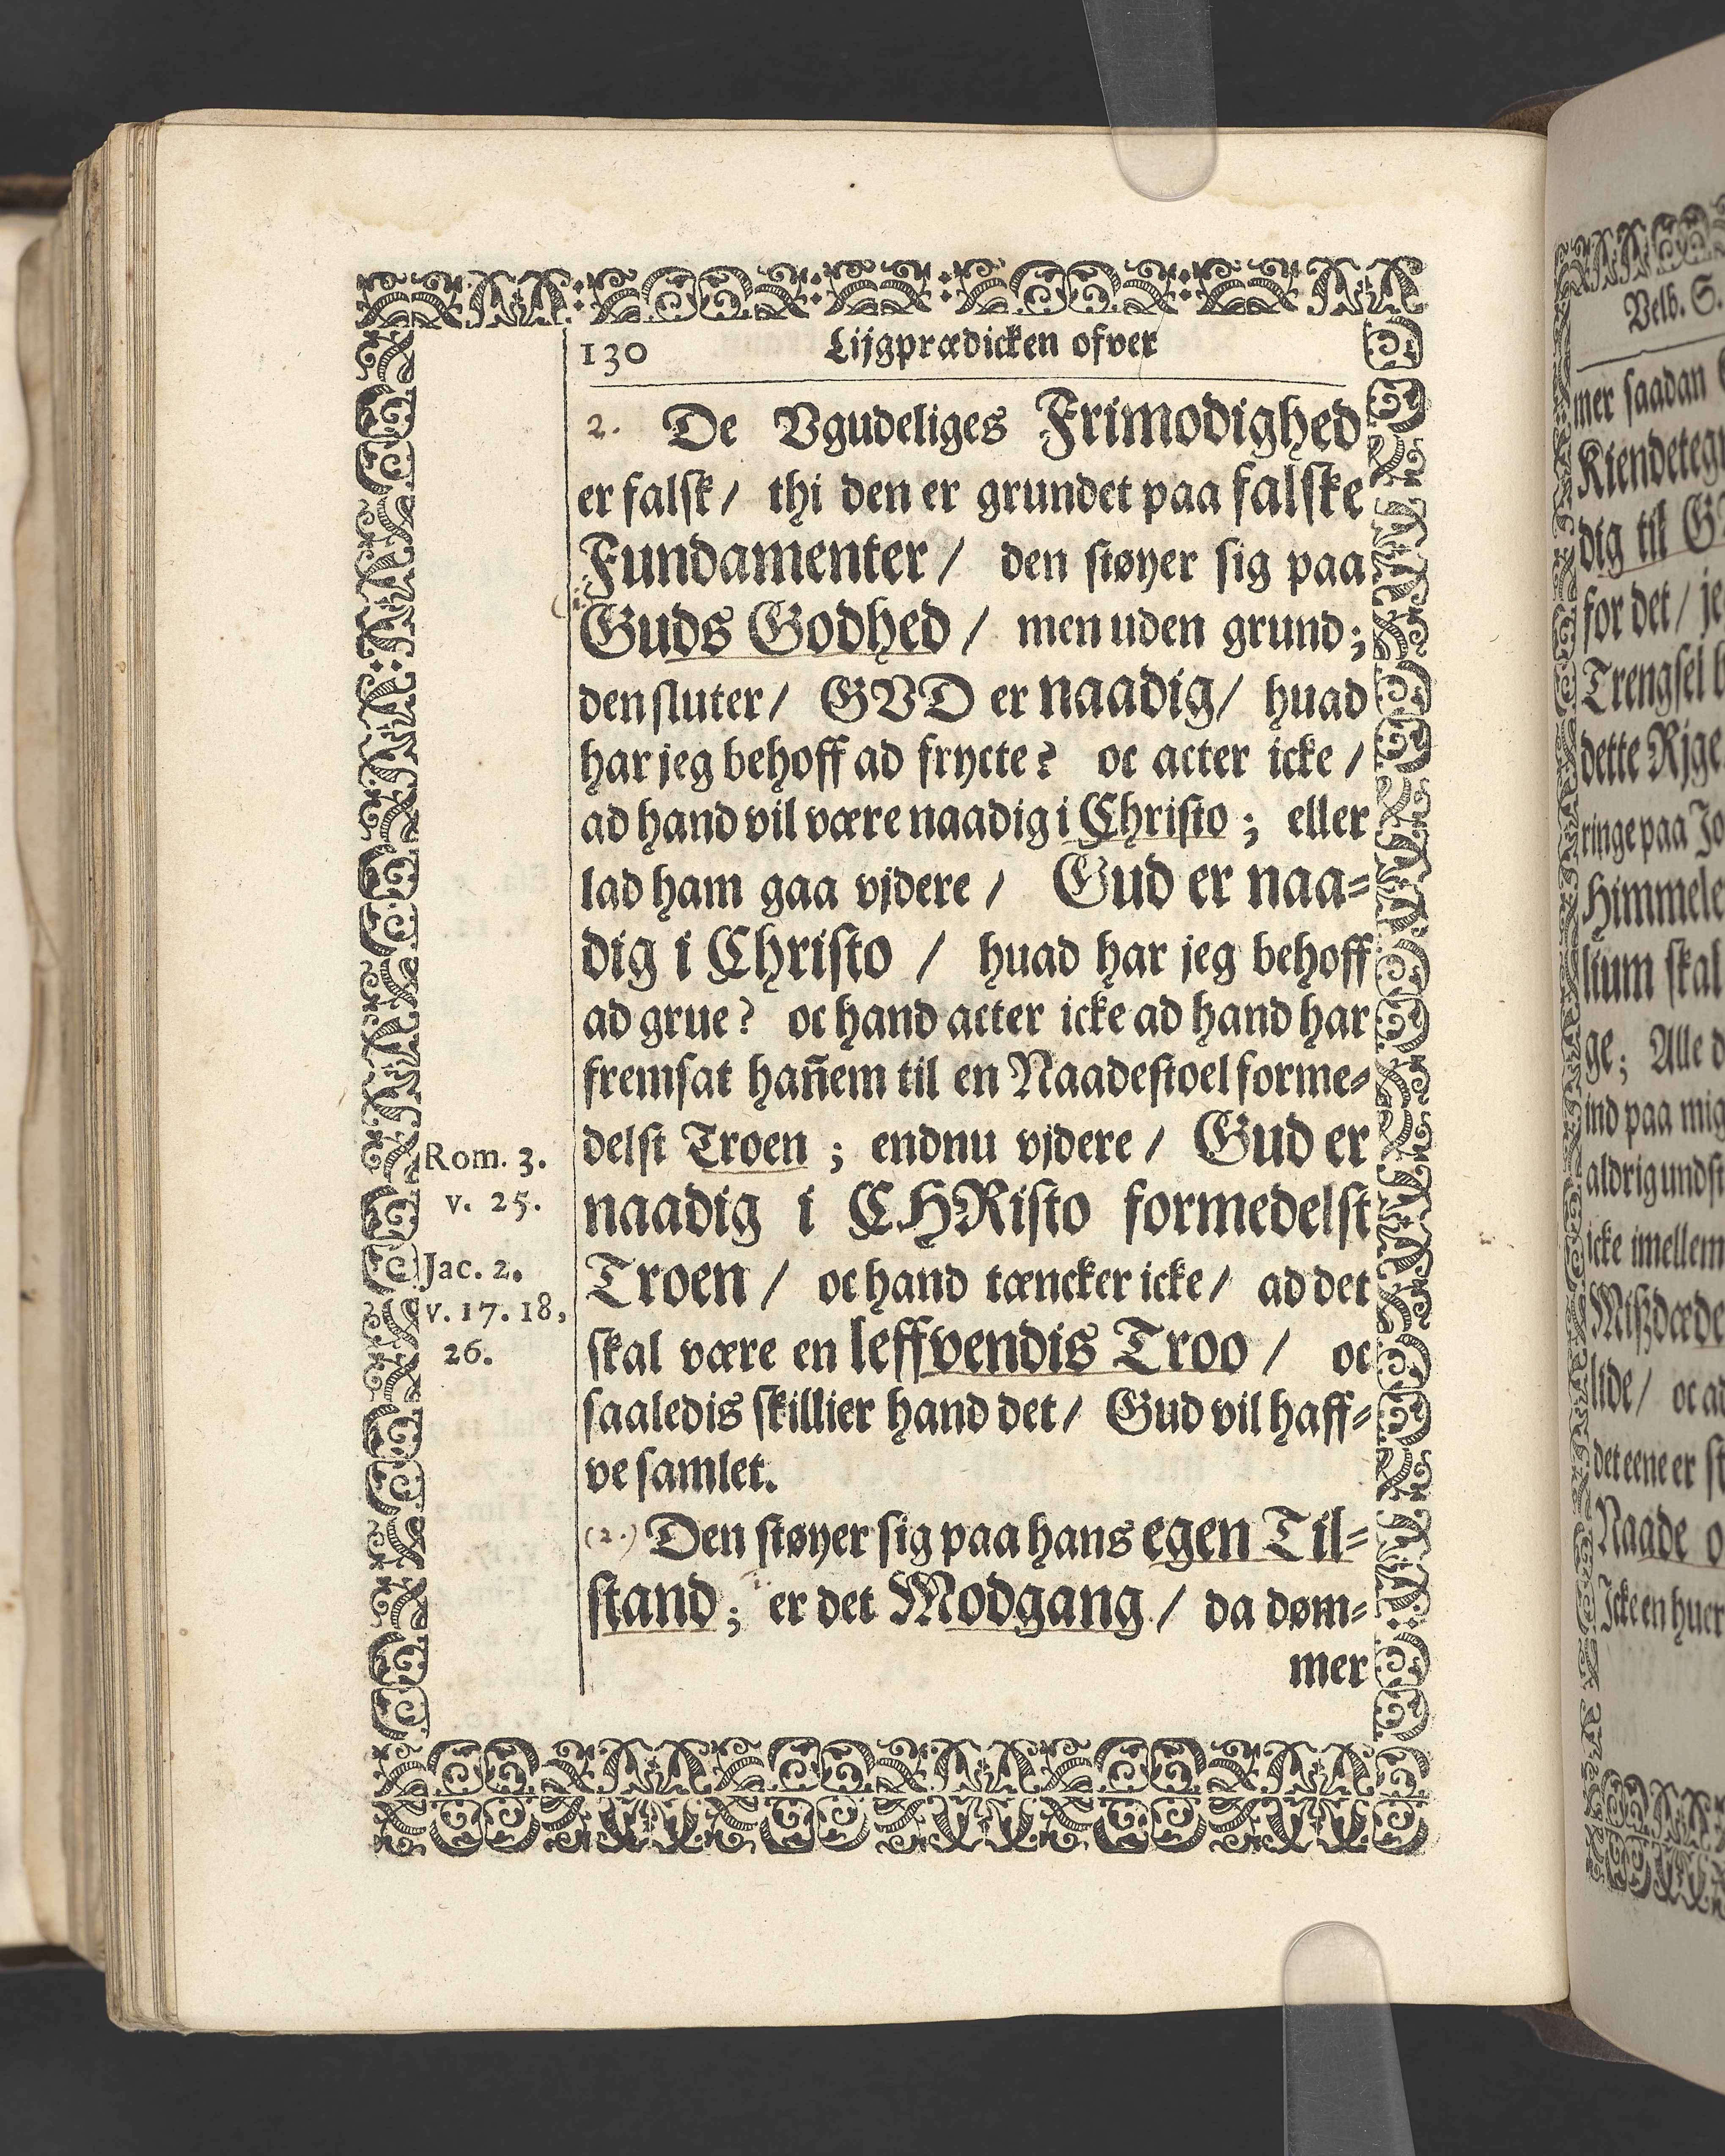 130 Lijgprædicken ofver
2. De Vgudeliges Frimodighed
er falsk / thi den er grundet paa falske
Fundamenter / den støyer sig paa
Guds Godhed / men uden grund;
den sluter / GVD er naadig / huad
har jeg behoff ad frycte? oc acter icke /
ad hand vil være naadig i Christo; eller
lad ham gaa vjdere / Gud er naa=
dig i Christo / huad har jeg behoff
ad grue? oc hand acter icke ad hand har
fremsat hañem til en Naadestoel forme=
delst Troen; endnu vjdere / Gud er
naadig i CHRisto formedelst
Troen / oc hand tæncker icke / ad det
skal være en leffvendis Troo / oc
saaledis skillier hand det / Gud vil haff=
ve samlet.
(2.) Den støyer sig paa hans egen Til=
stand; er det Modgang / da døm=
mer
Rom. 3.
v. 25.
Jac. 2.
v. 17. 18,
26.
Velb. S.
mer saadan
Kiendeteg
dig til G
for det / je
Trengsel
dette Rjge
ringe paa Jo
Himmele
lium skal
ge; Alle d
ind paa mig
aldrig undst
icke imellem
Mißdæde
lide / oc ad
det eene er st
Naade o
Icke en huer